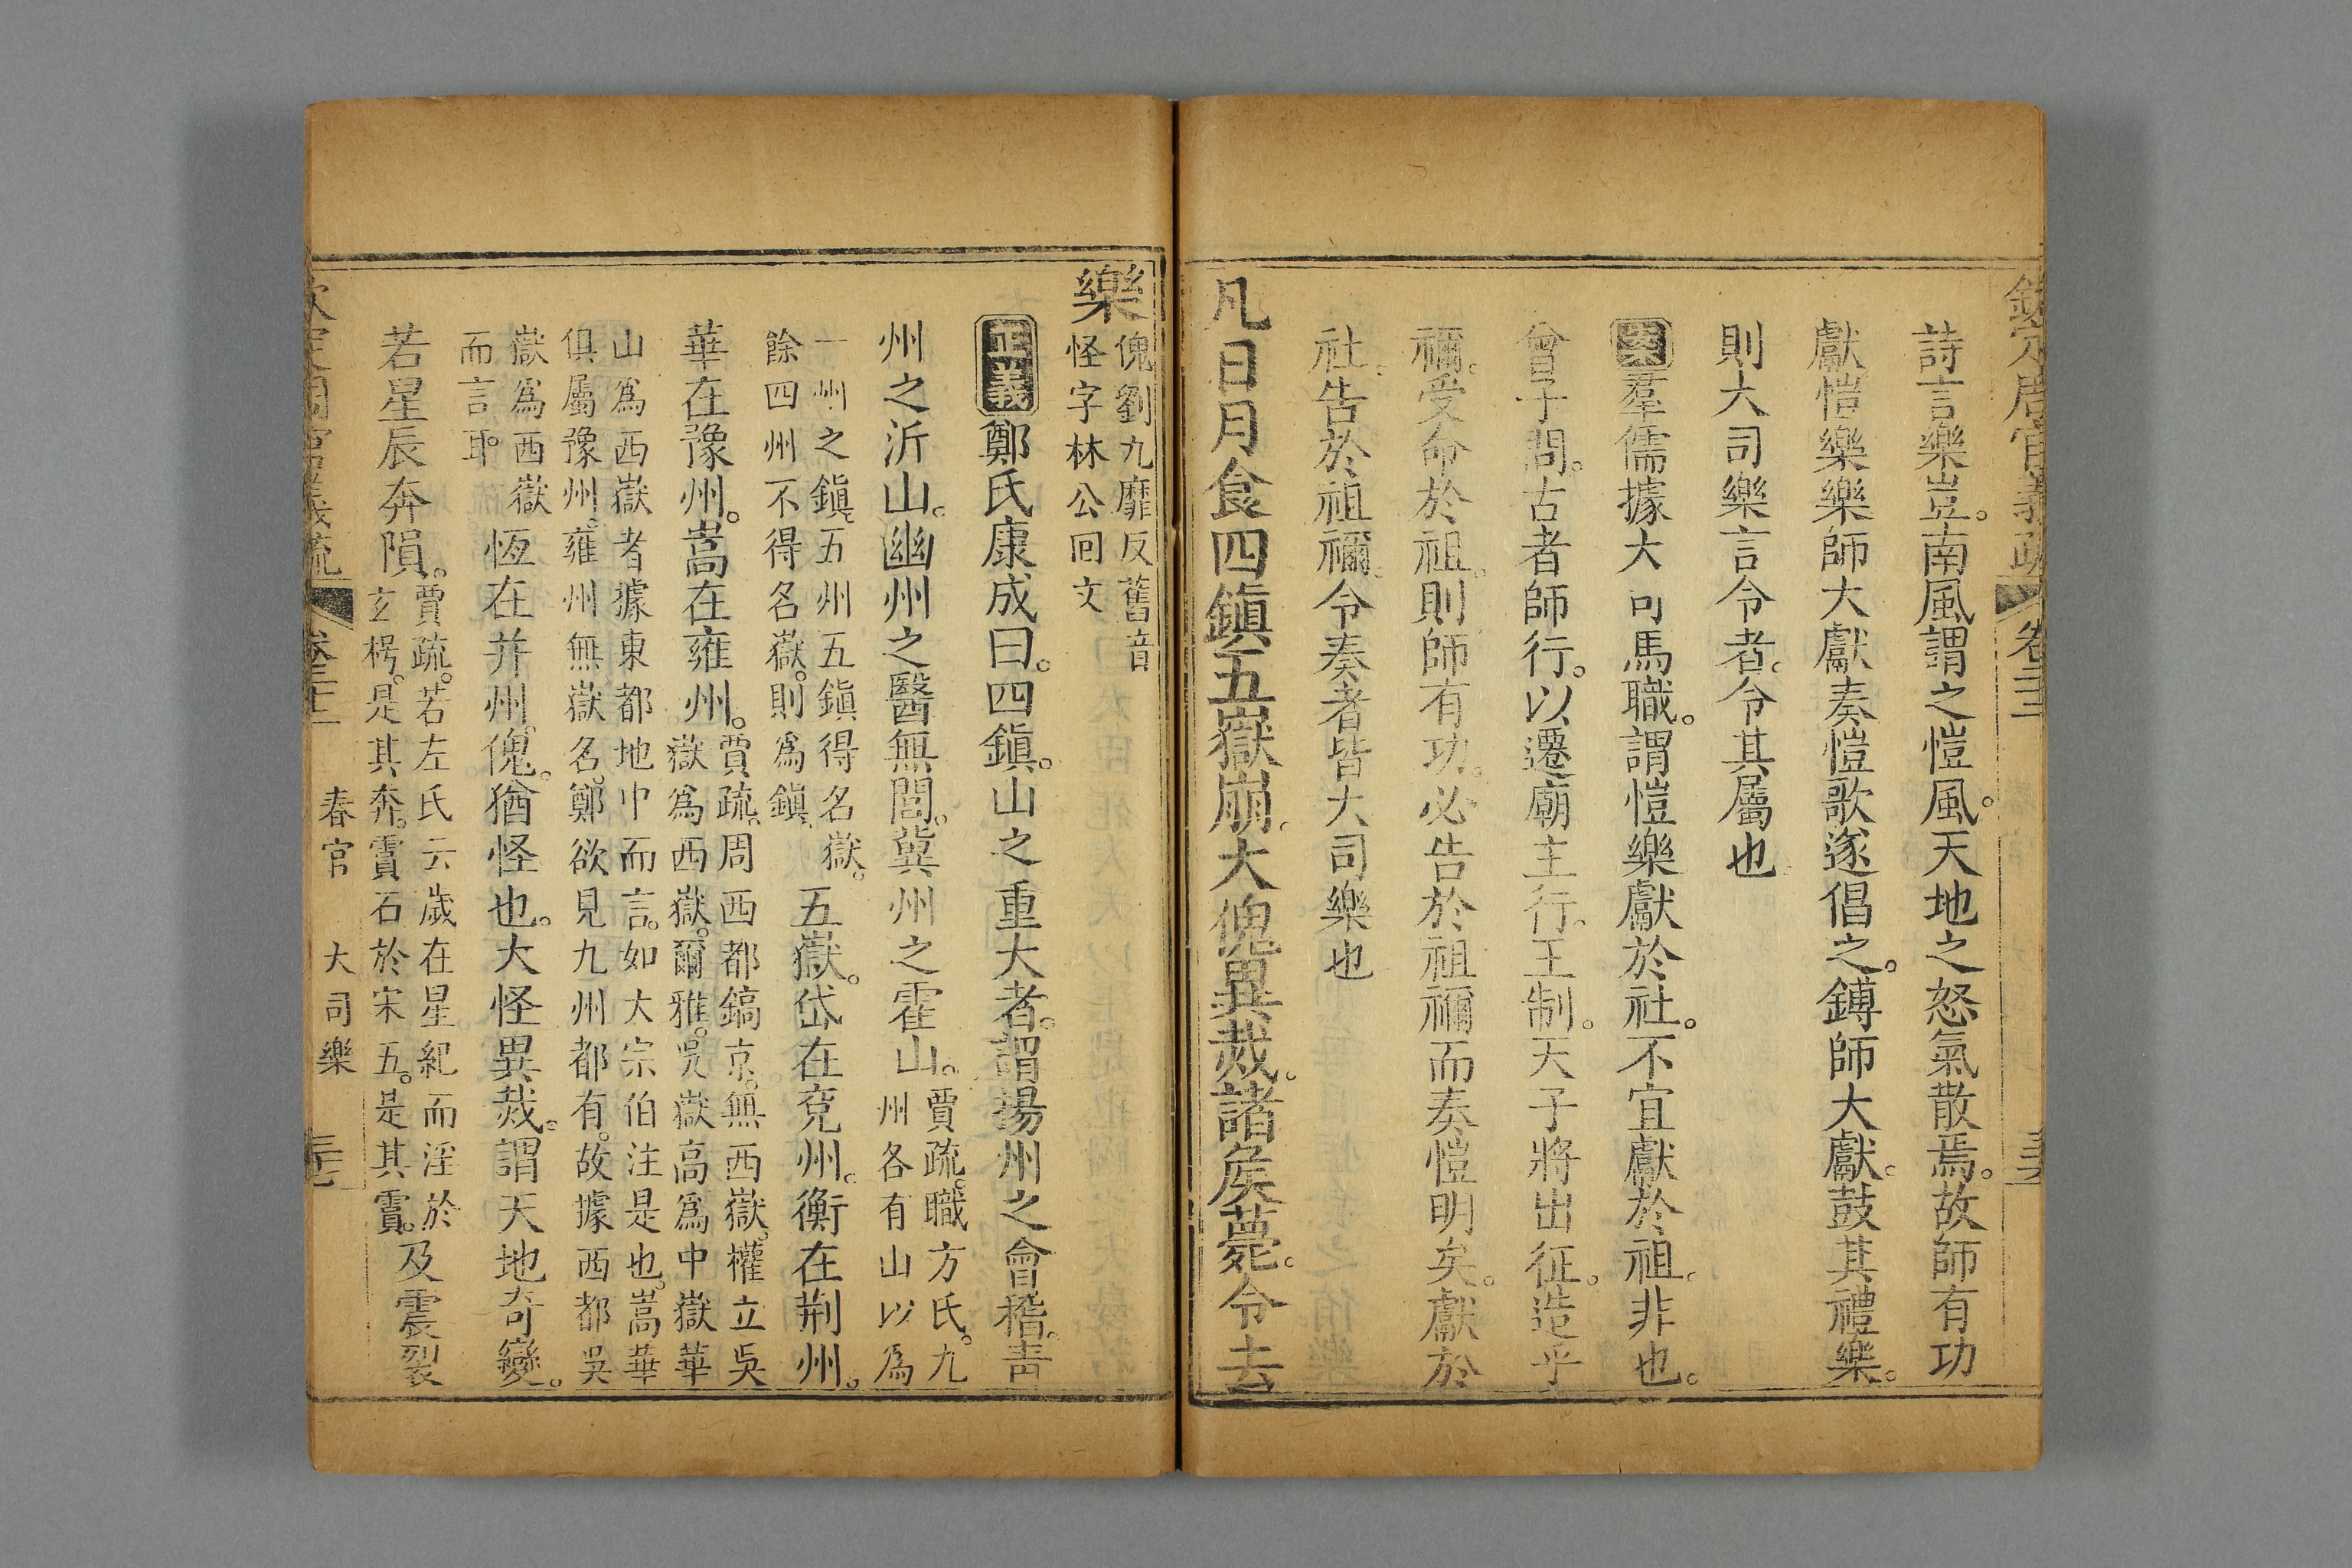 欽定周官義疏 卷二十二
詩言樂豈。南風謂之愷風。天地之怒氣散焉。故師有功
獻愷樂樂師大獻奏愷歌遂倡之。鎛師大獻。鼓其愷樂。
則大司樂言令者。令其屬也
案羣儒據大司馬職。謂愷樂獻於社。不宜獻於祖。非也。
曾子問。古者師行。以遷廟主行。王制。天子將出征。造乎
禰。受命於祖。則師有功。必告於祖禰而奏愷明矣。獻於
社。告於祖禰。令奏者皆大司樂也
凡日月食四鎭五嶽崩。大傀異烖。諸矦薨。令去
樂
傀劉九靡反舊音
怪字林公回文
正義鄭氏康成曰。四鎭。山之重大者。謂揚州之會稽。靑
州之沂山。幽州之醫無閭。冀州之霍山。
賈疏。職方氏。九
州各有山以爲
一州之鎭。五州五鎭得名嶽。
餘四州不得名嶽。則爲鎭。
五嶽。岱在兗州。衡在荆州。
華在豫州。嵩在雍州。
賈疏。周西都鎬京。無西嶽。權立吳
嶽爲西嶽。爾雅。吳嶽高爲中嶽華
山爲西嶽者據東都地中而言。如大宗伯注是也。嵩華
俱屬豫州。雍州無嶽名。鄭欲見九州都有。故據西都吳
嶽爲西嶽
而言耶。
恆在并州。傀。猶怪也。大怪異烖。謂天地奇變。
若星辰奔隕。
賈疏。若左氏云歲在星紀而淫於
玄枵。是其奔。霣石於宋五。是其霣。
及震裂
欽定周官義疏 卷二十二 春官 大司樂 三七